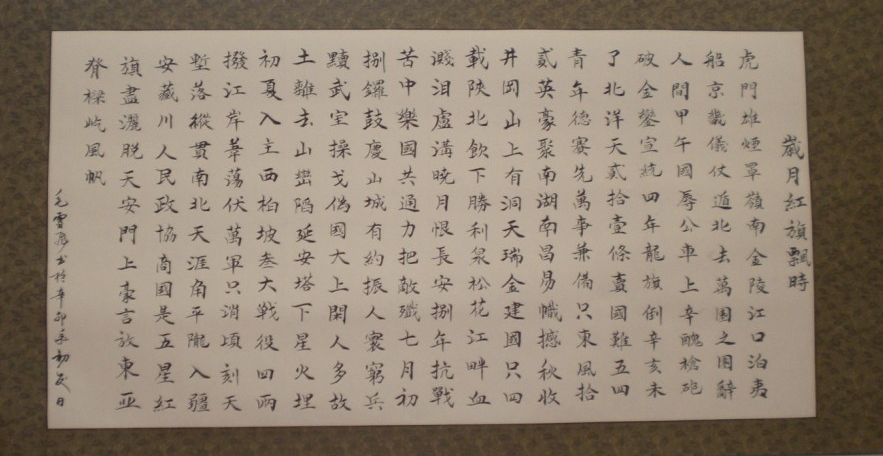 歲月紅旗飄時
虎門雄煙罩嶺南金陵江口泊夷
船京畿儀仗遁北去萬園之園辭
人間甲午國辱公車上辛醜槍砲
破金鑾宣統四年龍旗倒辛亥未
了北洋天貳拾壹條賣國難五四
青年德賽先萬事兼備只東風拾
貳英豪聚南湖南昌易幟撼秋收
井岡山上有洞天瑞金建國只四
載陝北飲下勝利泉松花江畔血
濺泪盧溝曉月恨長安捌年抗戰
苦中樂國共通力把敵殲七月初
捌鑼鼓慶山城有約振人寰窮兵
黷武室操戈偽國大上閑人多故
土離去山巒陷延安塔下星火埋
初夏入主西柏坡叁大戰役四兩
撥江岸葦蕩伏萬軍只消頃刻天
塹落縱貫南北天涯角平隴入疆
安藏川人民政協商國是五星紅
旗盡灑脫天安門上豪言放東亞
脊樑屹風帆
毛雪书於辛卯年初夏日